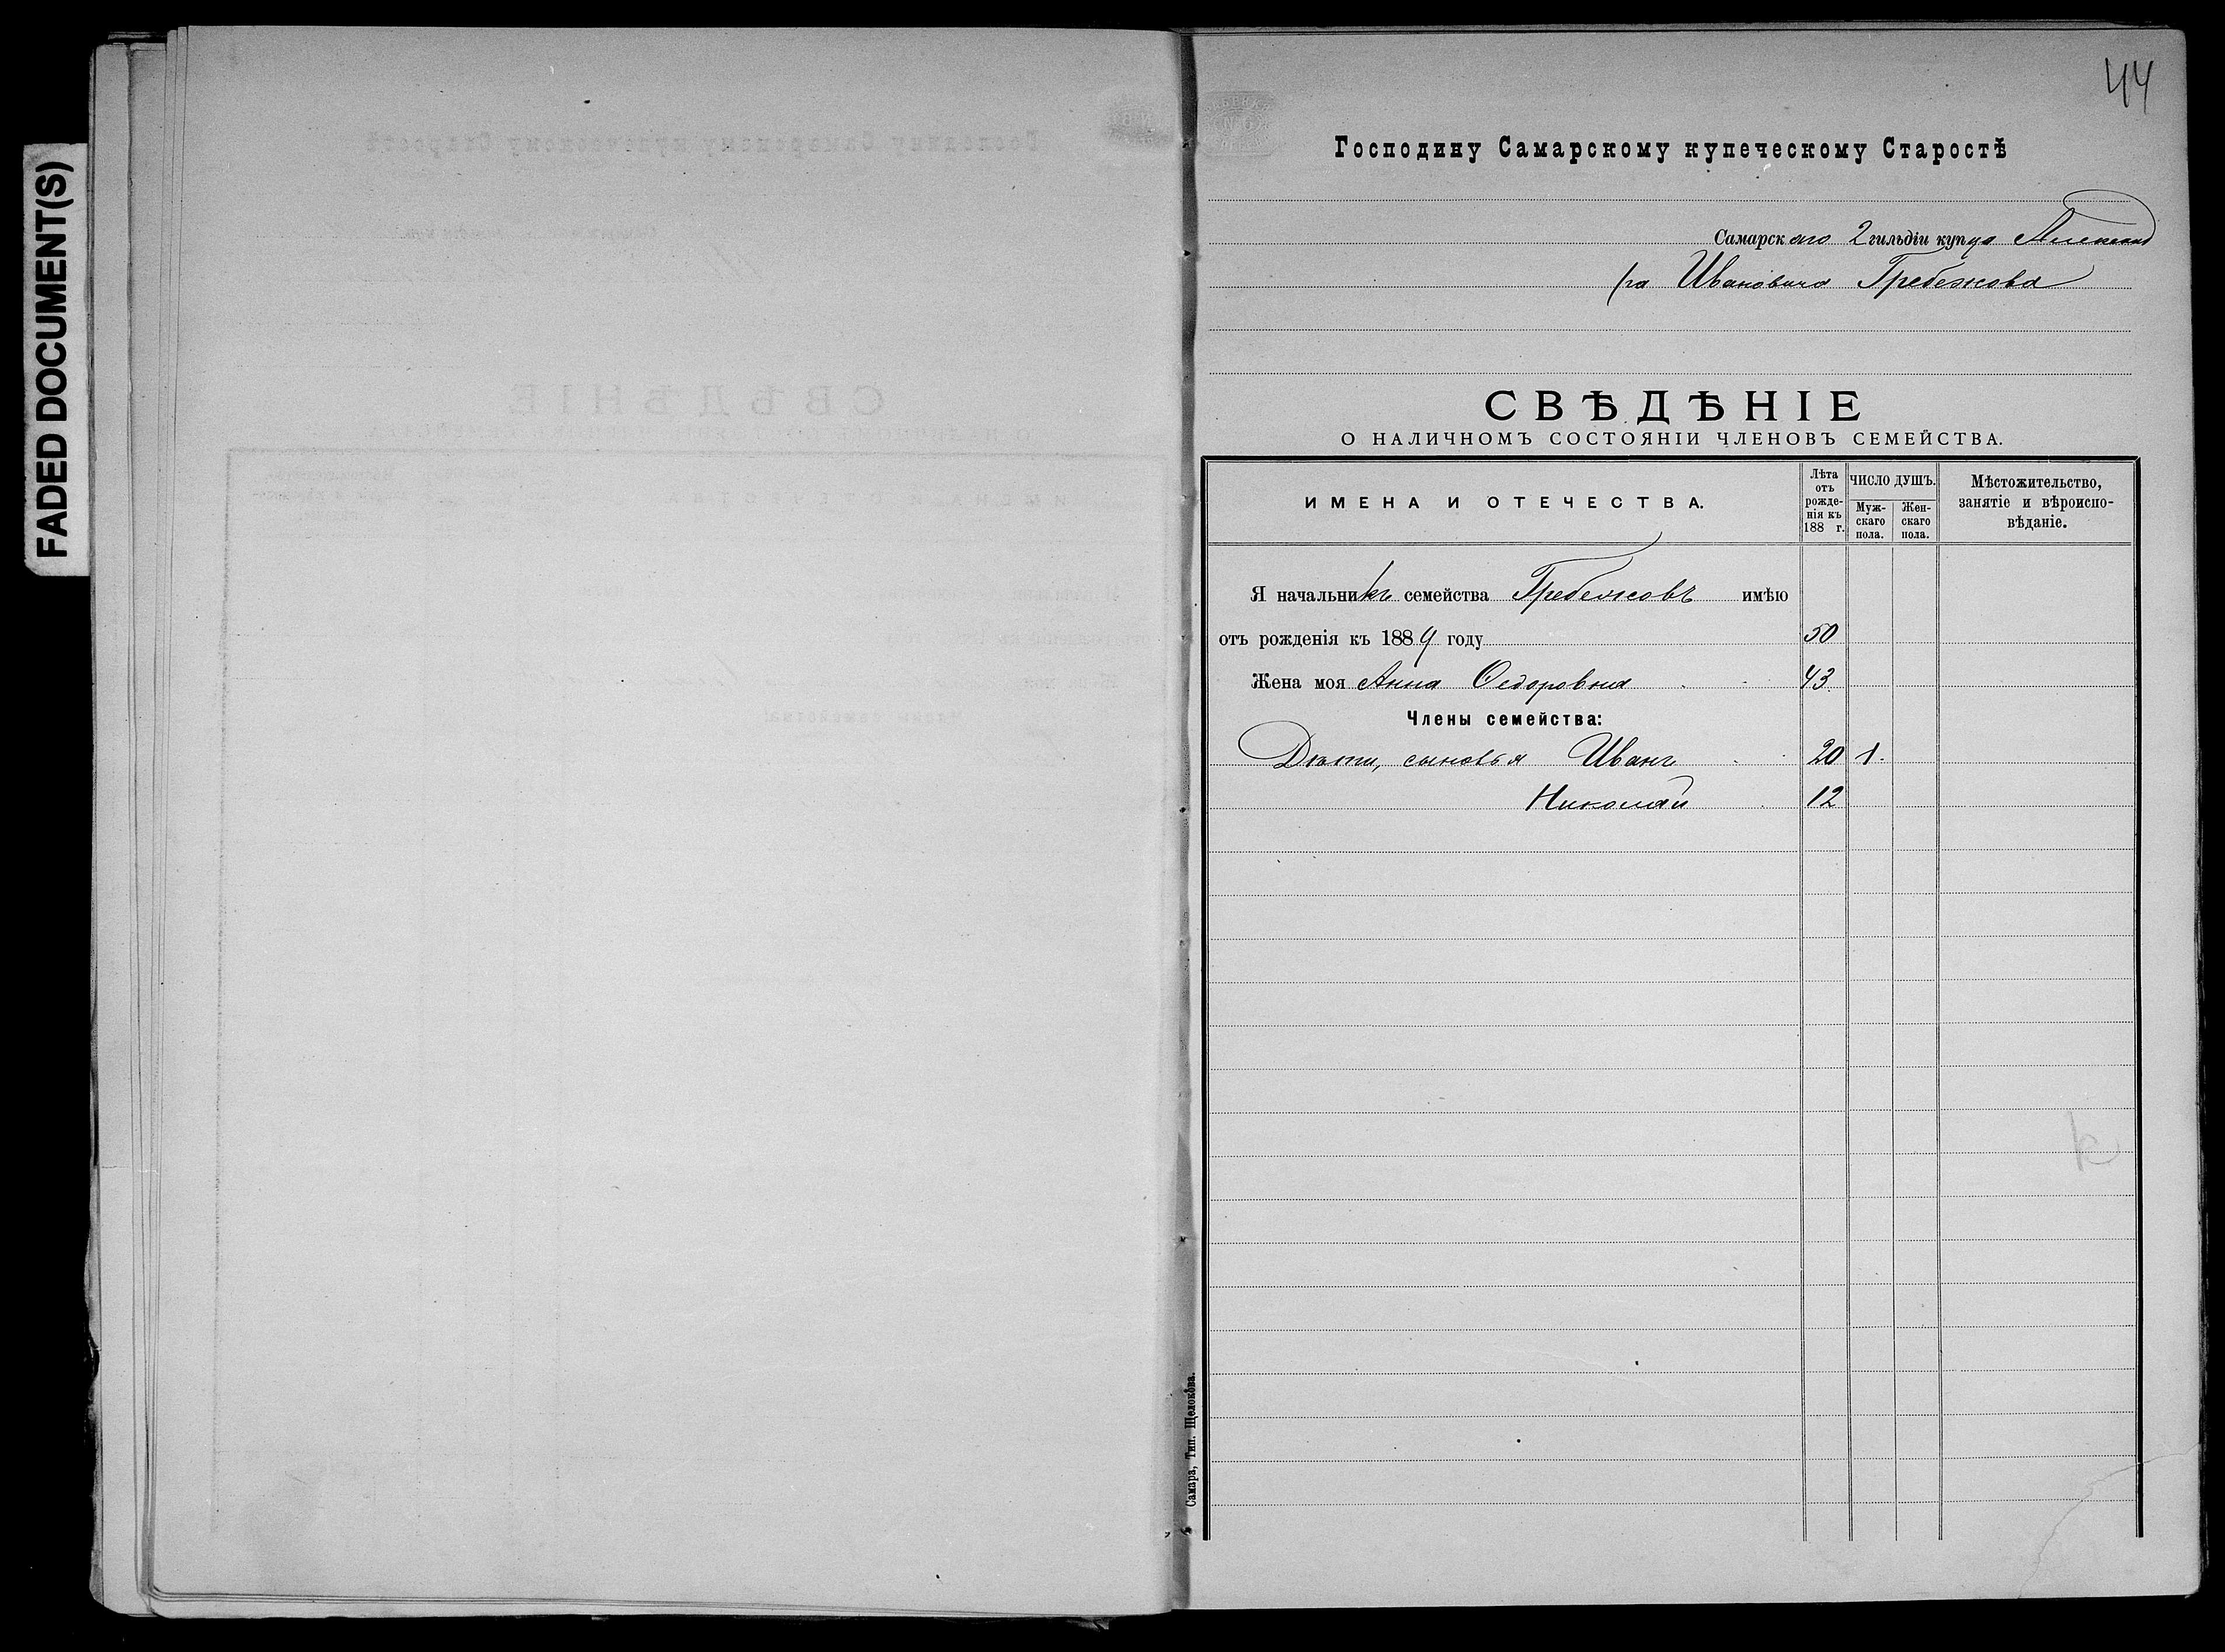 FADED DOCUMENT(S)
44
Господину Самарскому купеческому Старостѣ
Самарскаго 2 гильдіи купца Алексан
дра Ивановича Гребежова
СВѢДѢНІЕ
О НАЛИЧНОМЪ СОСТОЯНІИ ЧЛЕНОВЪ СЕМЕЙСТВА.
ИМЕНА И ОТЕЧЕСТВА.
Лѣта отъ рожде-нія къ 188 г.
ЧИСЛО ДУШЪ.
Муж-скаго пола.
Жен-скаго пола.
Мѣстожительство, занятіе и вѣроиспо-вѣданіе.
Я начальникъ семейства Гребежовъ имѣю
отъ рожденія къ 1889 году 50
Жена моя Анна Ѳедоровна 43
Члены семейства:
Дѣти, сыновья Иванъ 20 1.
Николай 12
Самара, Тип. Щелокова.